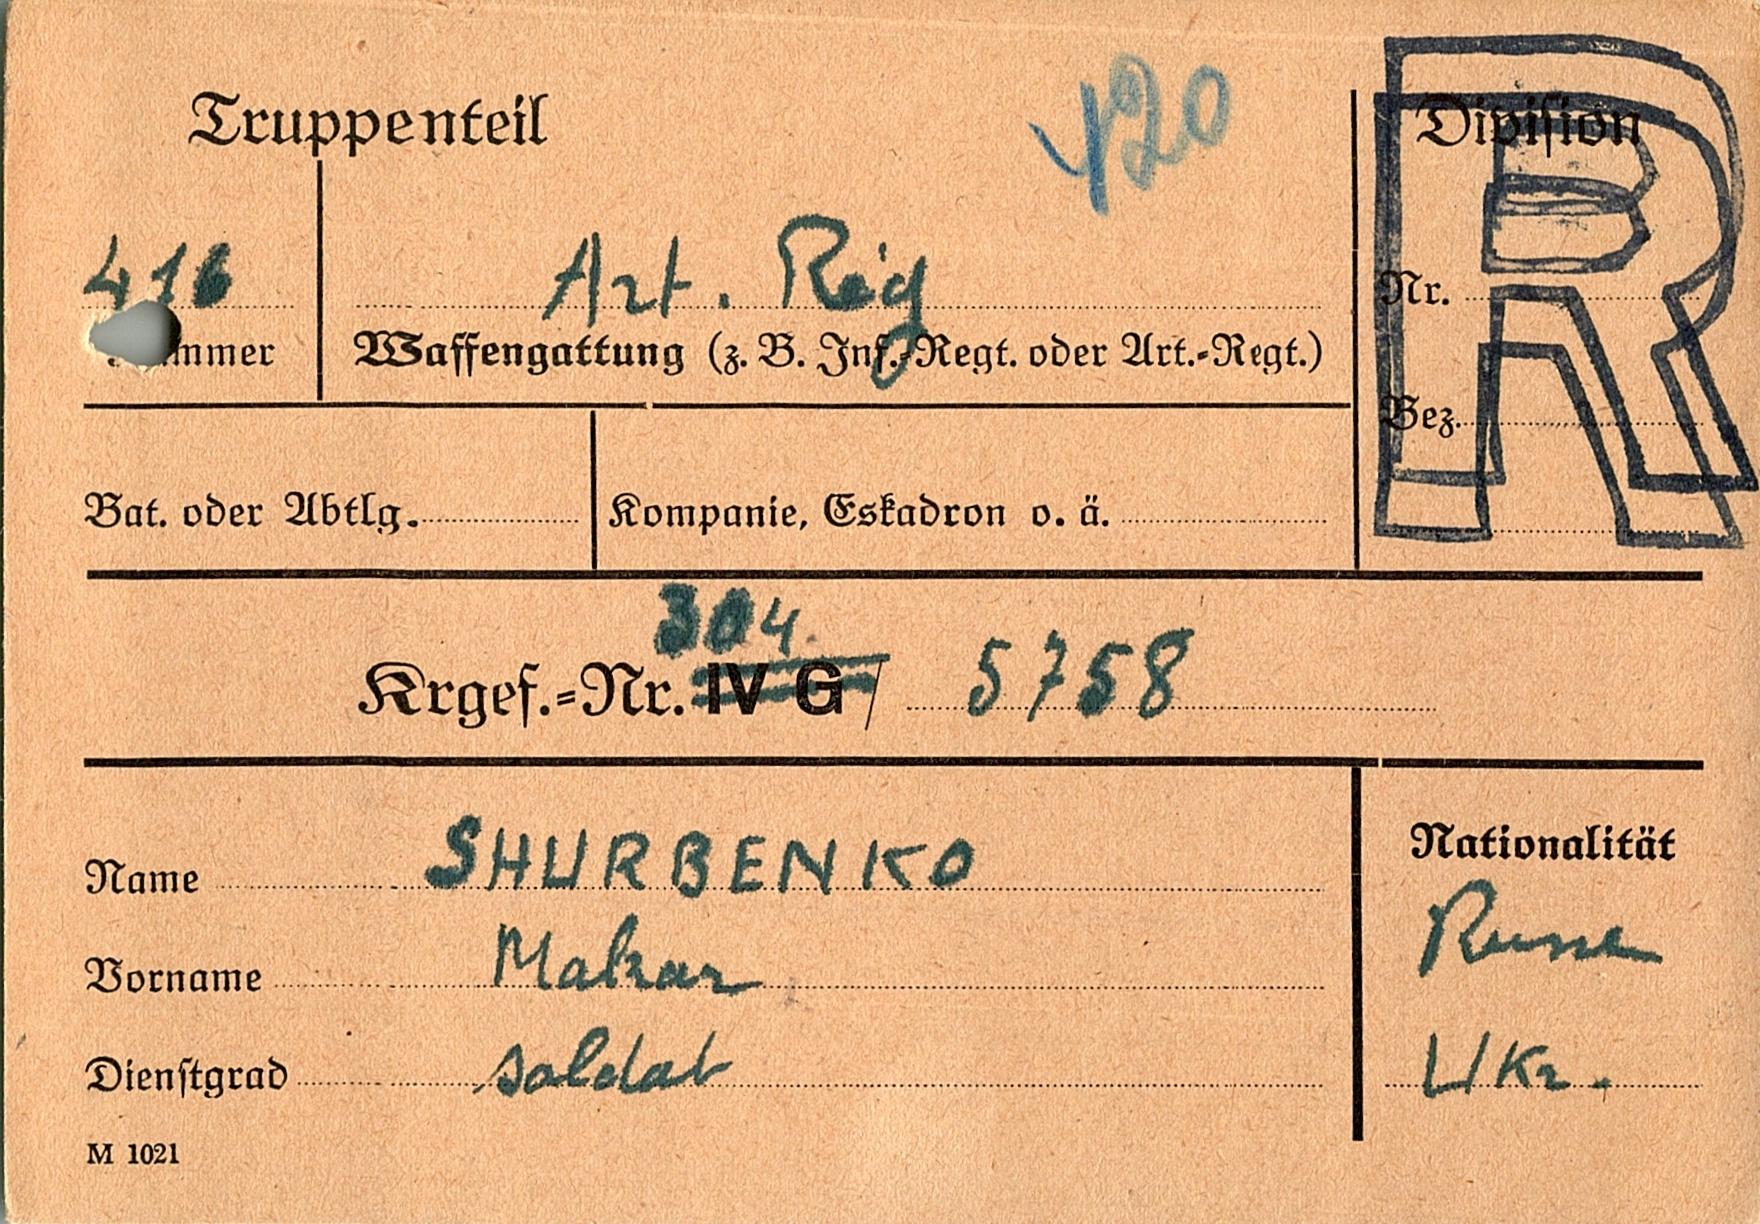 Truppenteil
420
Division
R
416
Art. Reg
Nr.
mmer
Waffengattung (z. B. Inf.-Regt. oder Art.-Regt.)
Bez.
Bat. oder Abtlg.
Kompanie, Eskadron o. ä.
304
Krgef.-Nr. IV G / 5758
Name SHURBENKO
Nationalität
Russe
Vorname Makar
Dienstgrad soldat
Ukr.
M 1021